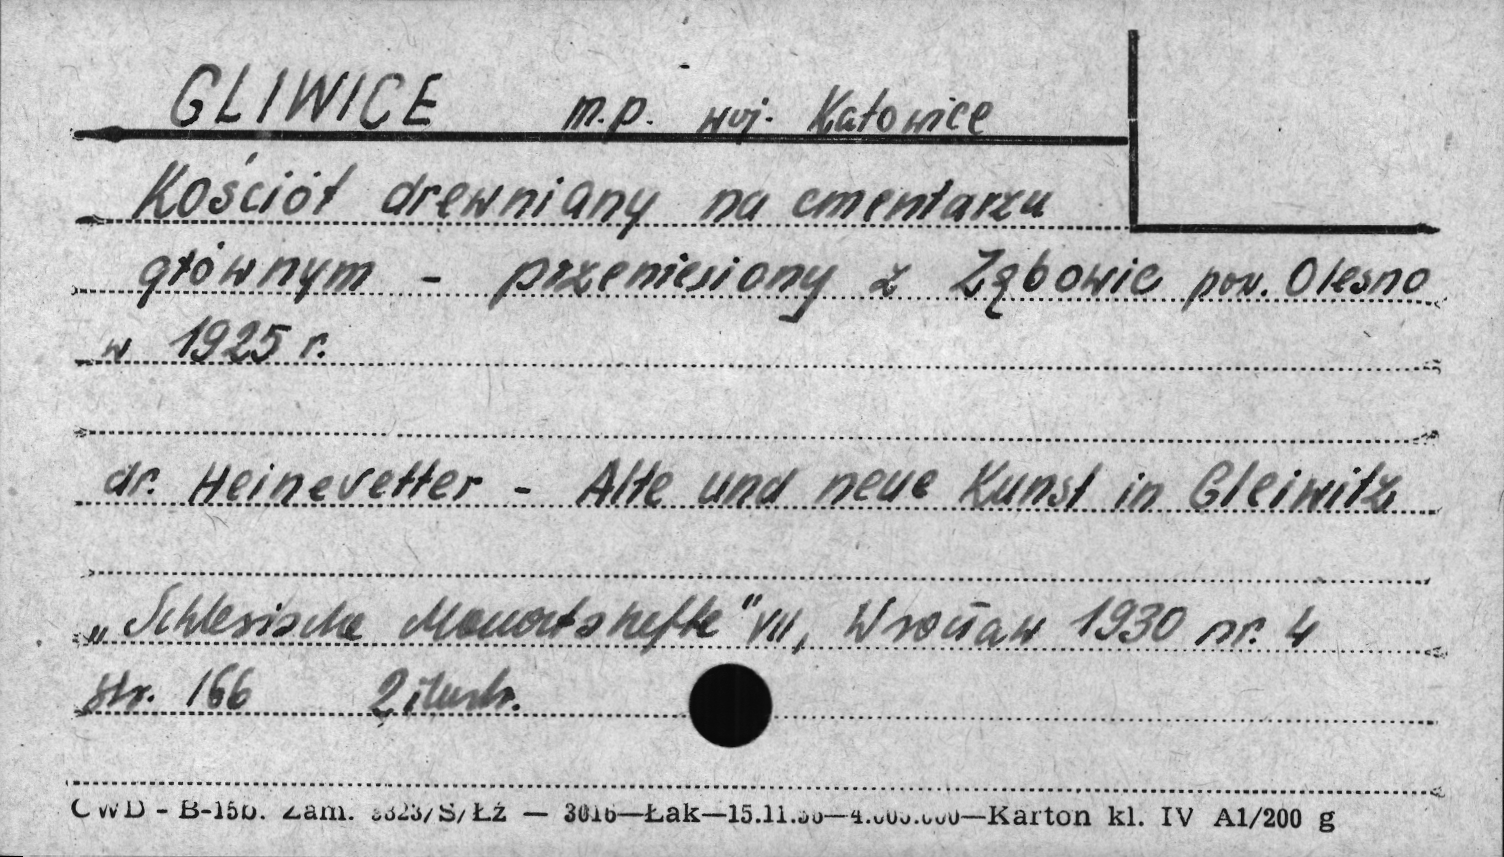 GLIWICE m.p. woj. Katowice
Kościół drewniany na cmentarzu
głównym - przeniesiony z Ząbowic pow. Olesno
w 1925 r.
dr. Heinevetter - Alte und neue Kunst in Gleiwitz
„Schlesische Monatshefte" VII, Wrocław 1930 nr. 4
str. 166 2 ilustr.
CWD - B-15b. Zam. 8323/S/Łź — 3016—Łak—15.11.56—4.000.000—Karton kl. IV A1/200 g